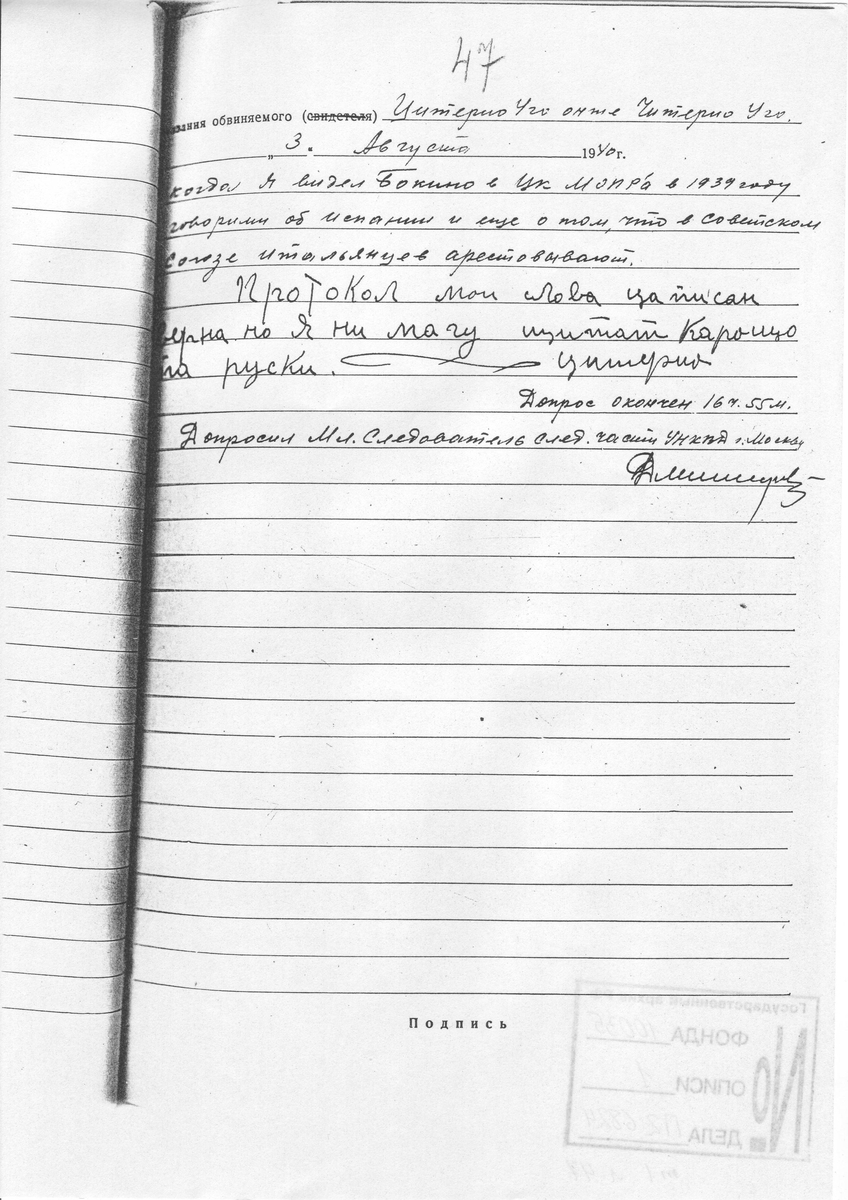 47
азания обвиняемого (свидетеля) Цитерио Уго он же Читерио Уго.
„ 3. Августа 1940 г.
когда я видел Бокино в ЦК МОПР'а в 1939 году
говорили об Испании и еще о том, что в Советском
Союзе итальянцев арестовывают.
Протокол мои слова записан
верна но я ни магу щитат
па руски. Цитерио
Допрос окончен 16 ч. 55 м.
Допросил Мл. Следователь след. части УНКВД г. Москвы
Подпись
Государственный архив РФ
№
ФОНДА 10035
ОПИСИ 1
ДЕЛА